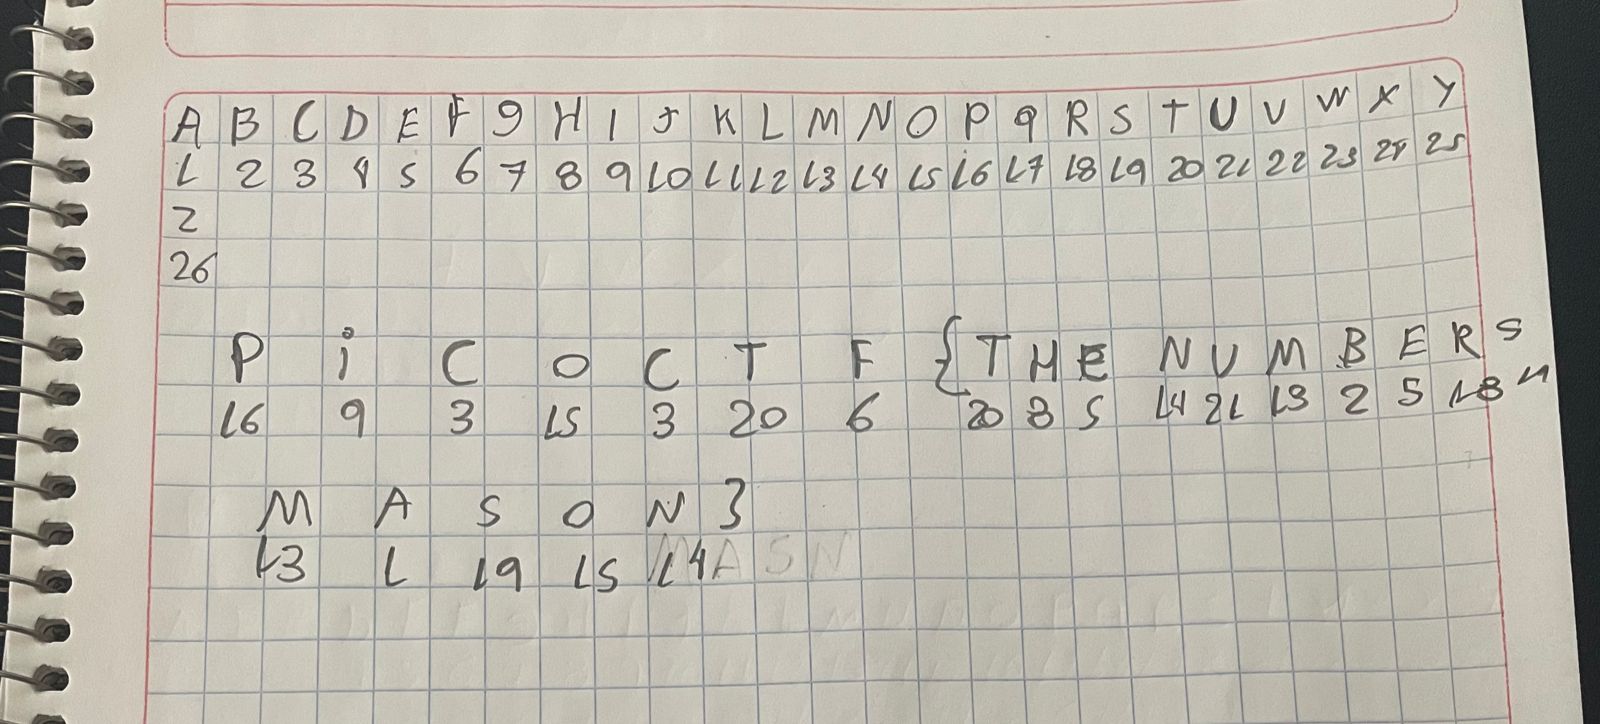 A B C D E F G H I J K L M N O P Q R S T U V W X Y
1 2 3 4 5 6 7 8 9 10 11 12 13 14 15 16 17 18 19 20 21 22 23 24 25
Z
26
P i C O C T F {T H E N U M B E R S
16 9 3 15 3 20 6 20 8 5 14 21 13 2 5 18
M A S O N }
13 1 19 15 14